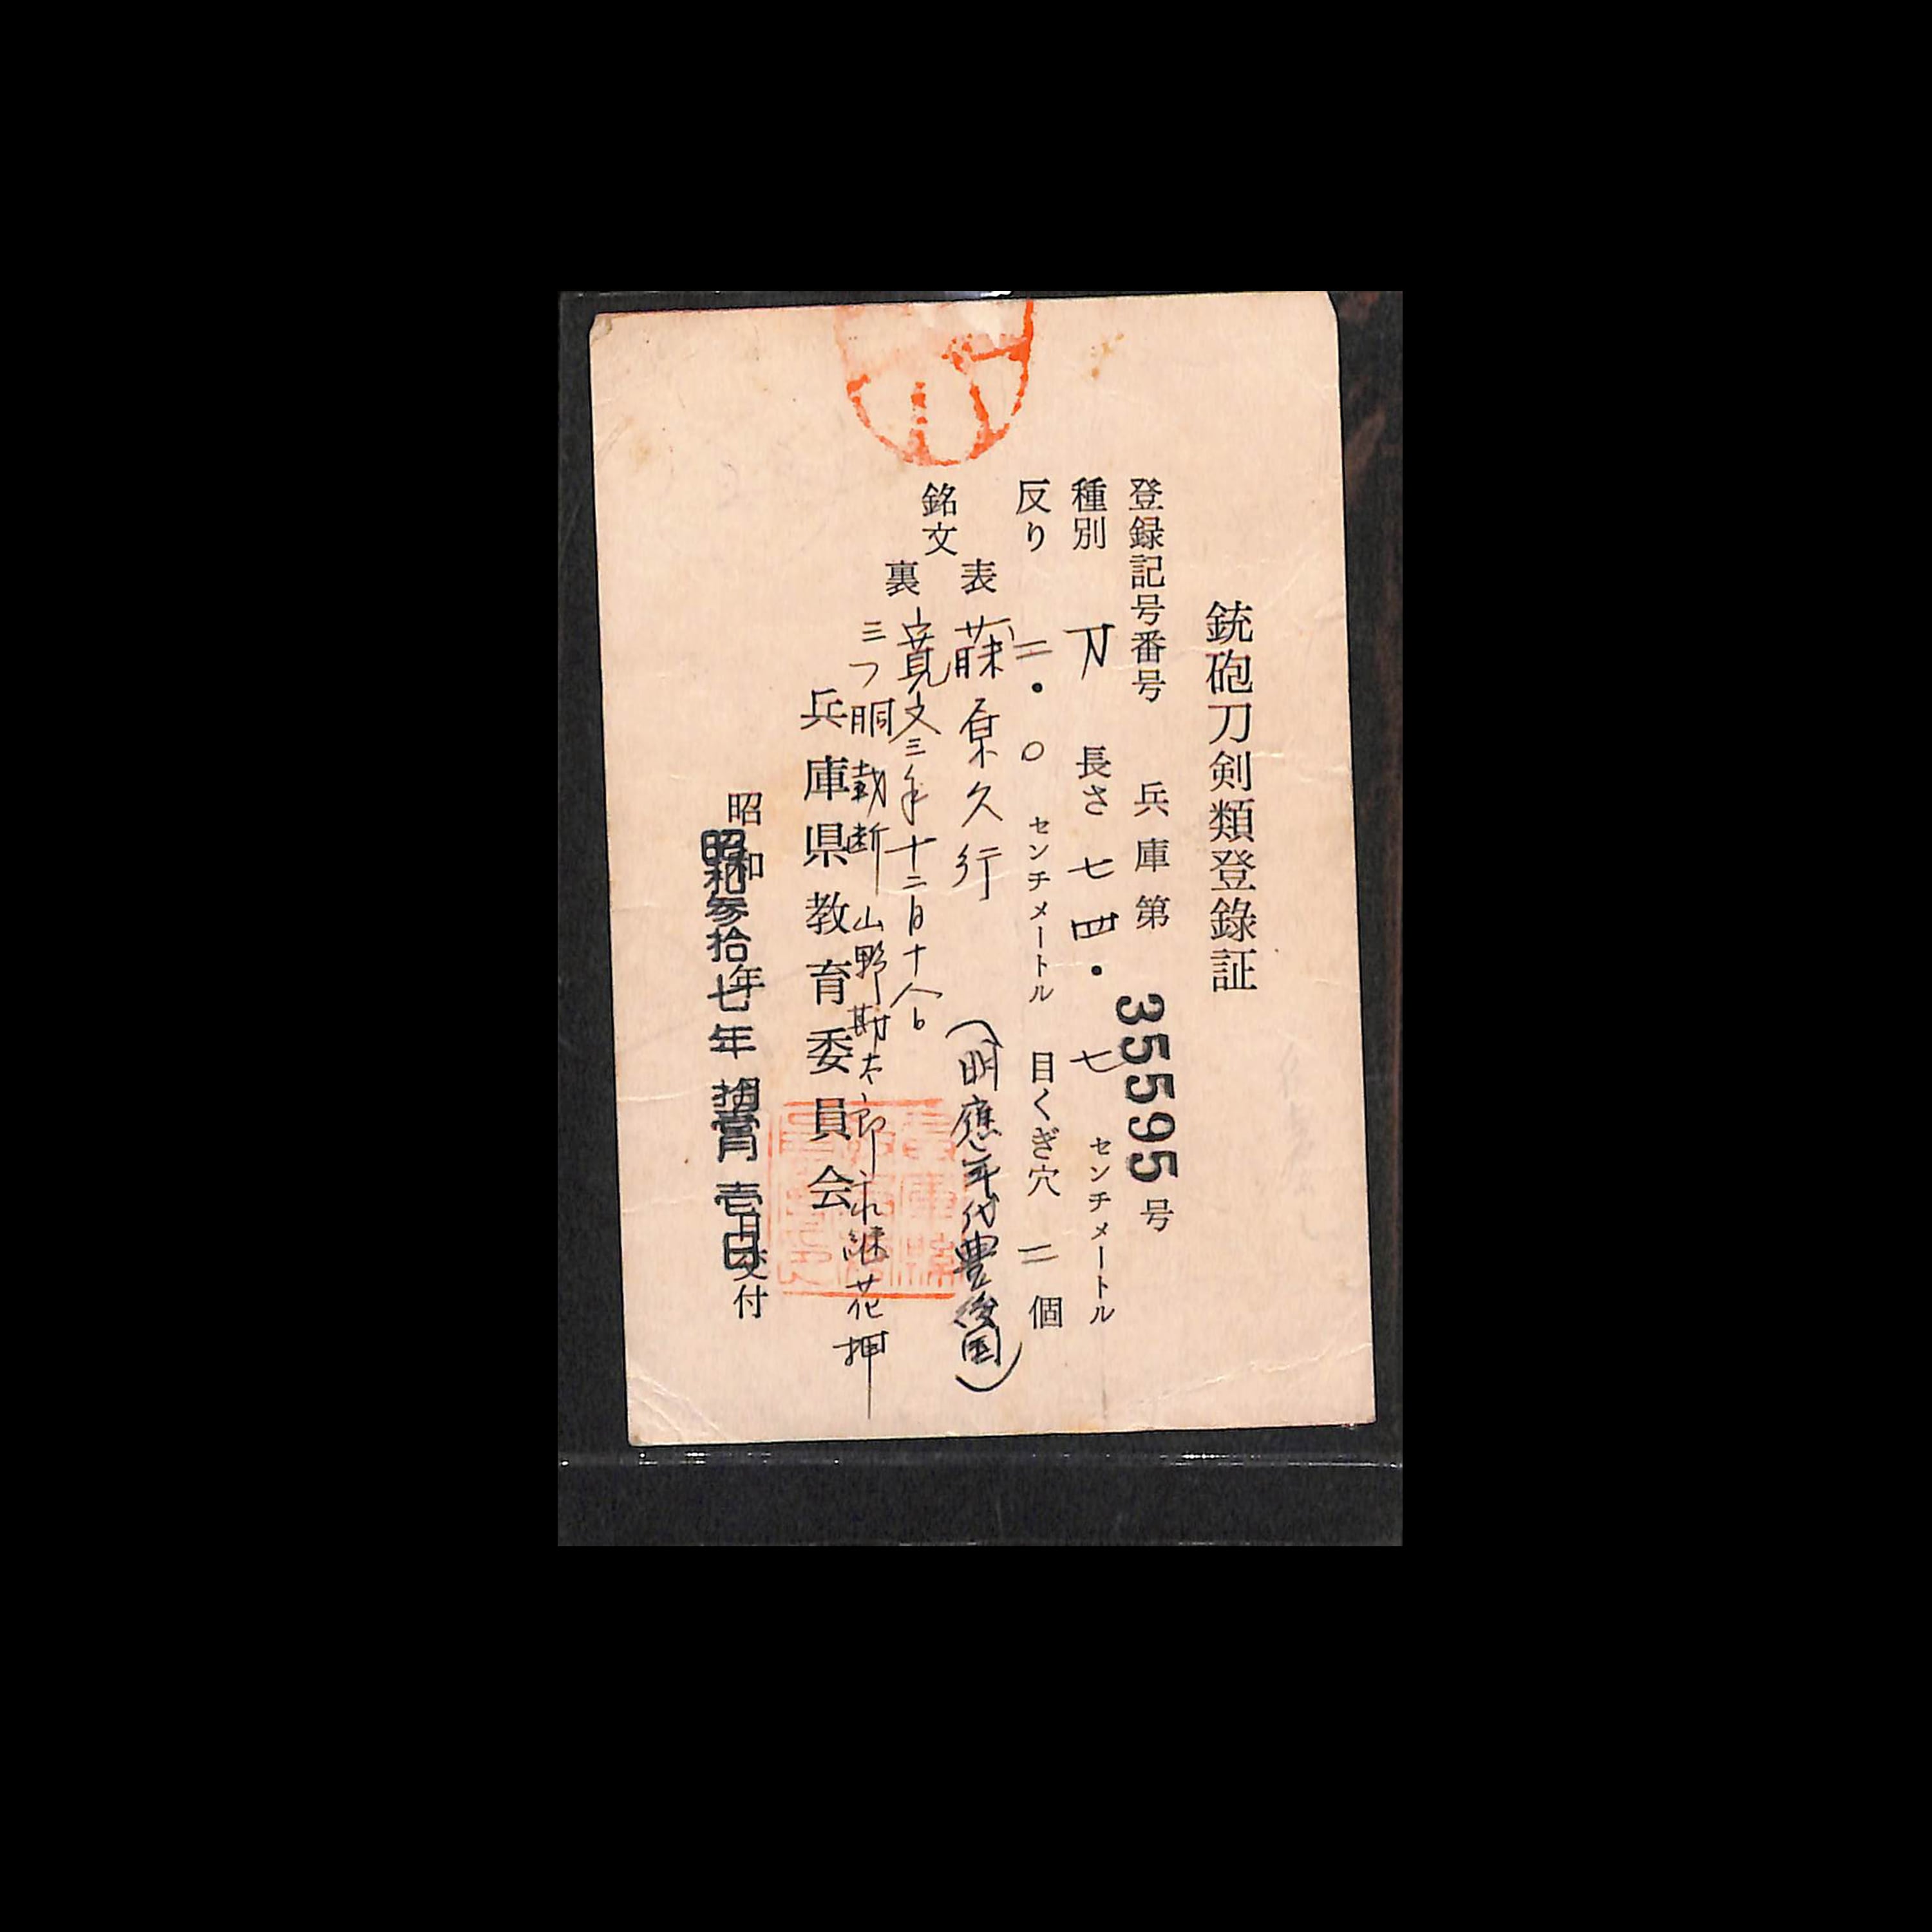 銃砲刀剣類登錄証
登録記号番号 兵庫第 35595 号
種別 刀 長さ 七四・七 センチメートル
反り 二・〇 センチメートル 目くぎ穴 二 個
銘文
表 藤原久行 (明應年代豊後国)
裏 寛文三年十二月十八日
三ツ胴截断 山野勘十郎 久継 花押
兵庫県教育委員会
昭和 年 月 日交付
昭和参拾七年 拾壹月 壱日